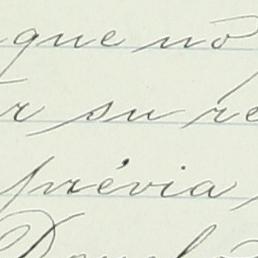 que nò
r su re
prévia